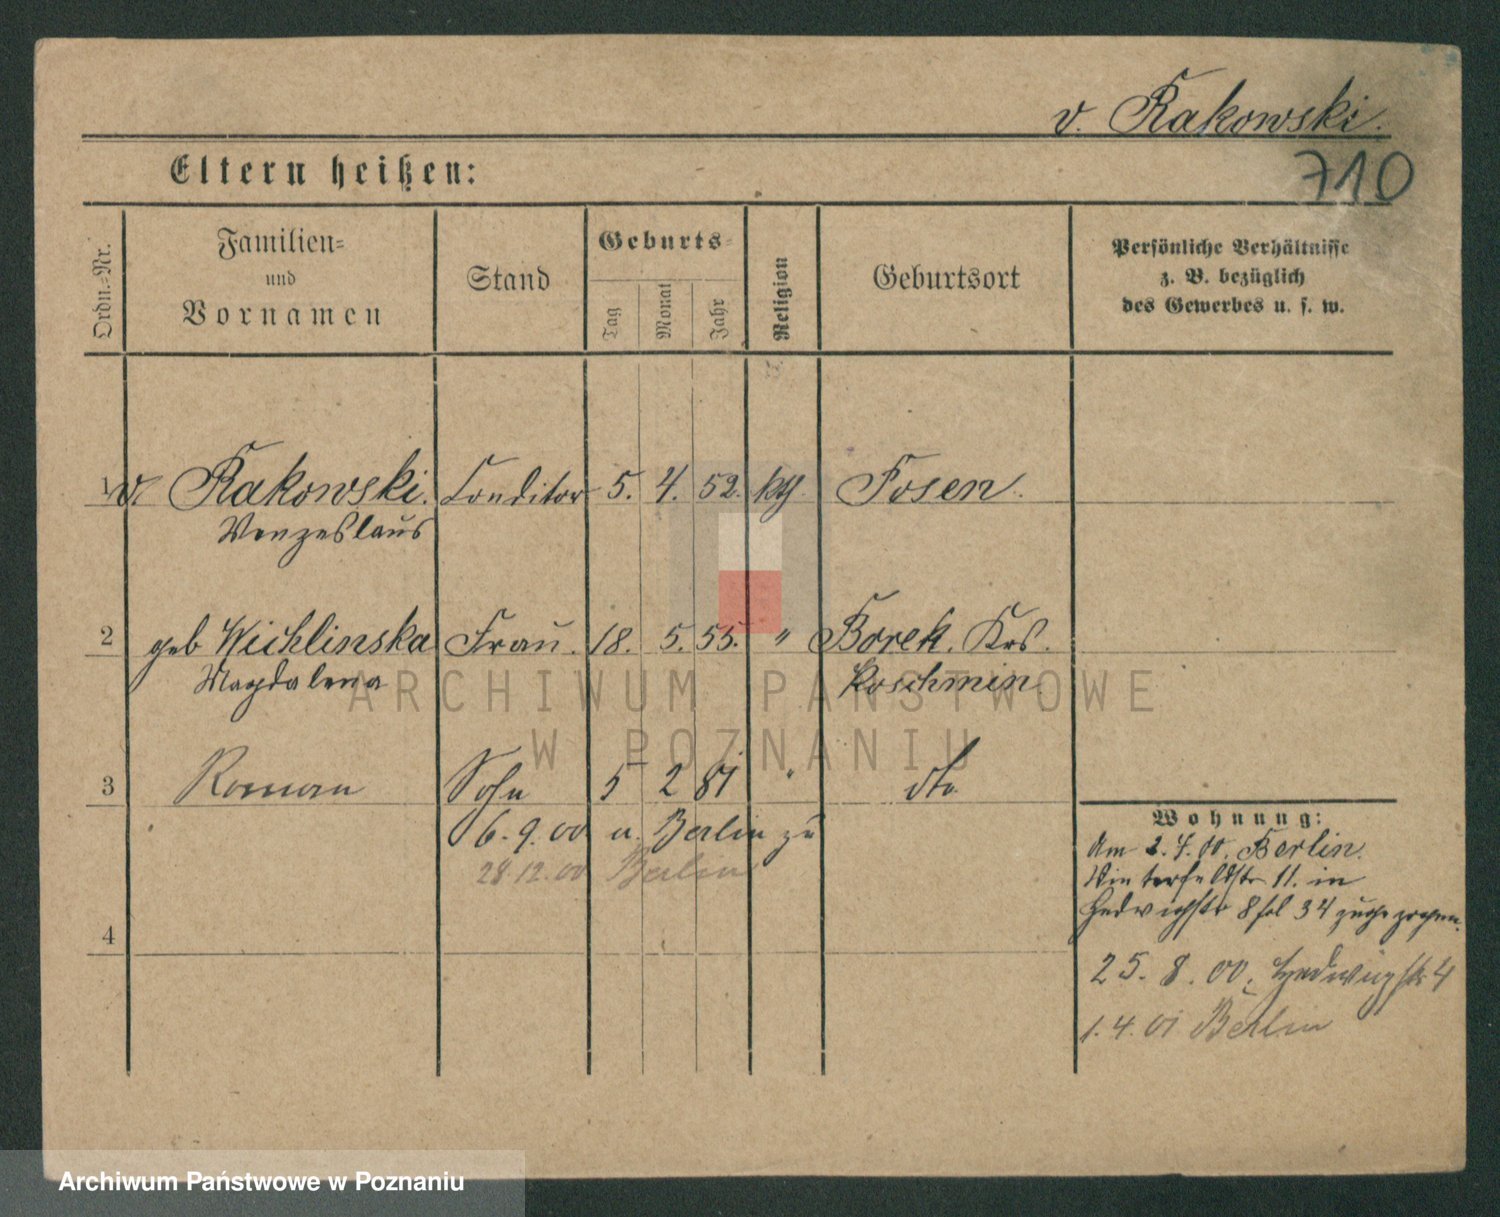 v. Rakowski.
Eltern heißen:
710
Ordn.-Nr.
Familien-
und
Vornamen
Stand
Geburts-
Tag
Monat
Jahr
Religion
Geburtsort
Persönliche Verhältnisse
z. B. bezüglich
des Gewerbes u. s. w.
1 v. Rakowski. Conditor 5. 4. 52. kth. Posen.
Wenzeslaus
2 geb Wichlinska Frau. 18. 5. 55. " Borek. Krs.
Magdalena Koschmin
3 Roman Sohn 5 2 81 " dto
6. 9. 00 u. Berlin zu
28.12.00 Berlin
4
Wohnung:
Am 2. 4. 00. Berlin.
Winterfeldstr 11. in
Hedwigstr 8 bei 34 zugezogen.
25. 8. 00. Hedwigstr 4
1. 4. 01 Berlin
ARCHIWUM PAŃSTWOWE
W POZNANIU
Archiwum Państwowe w Poznaniu